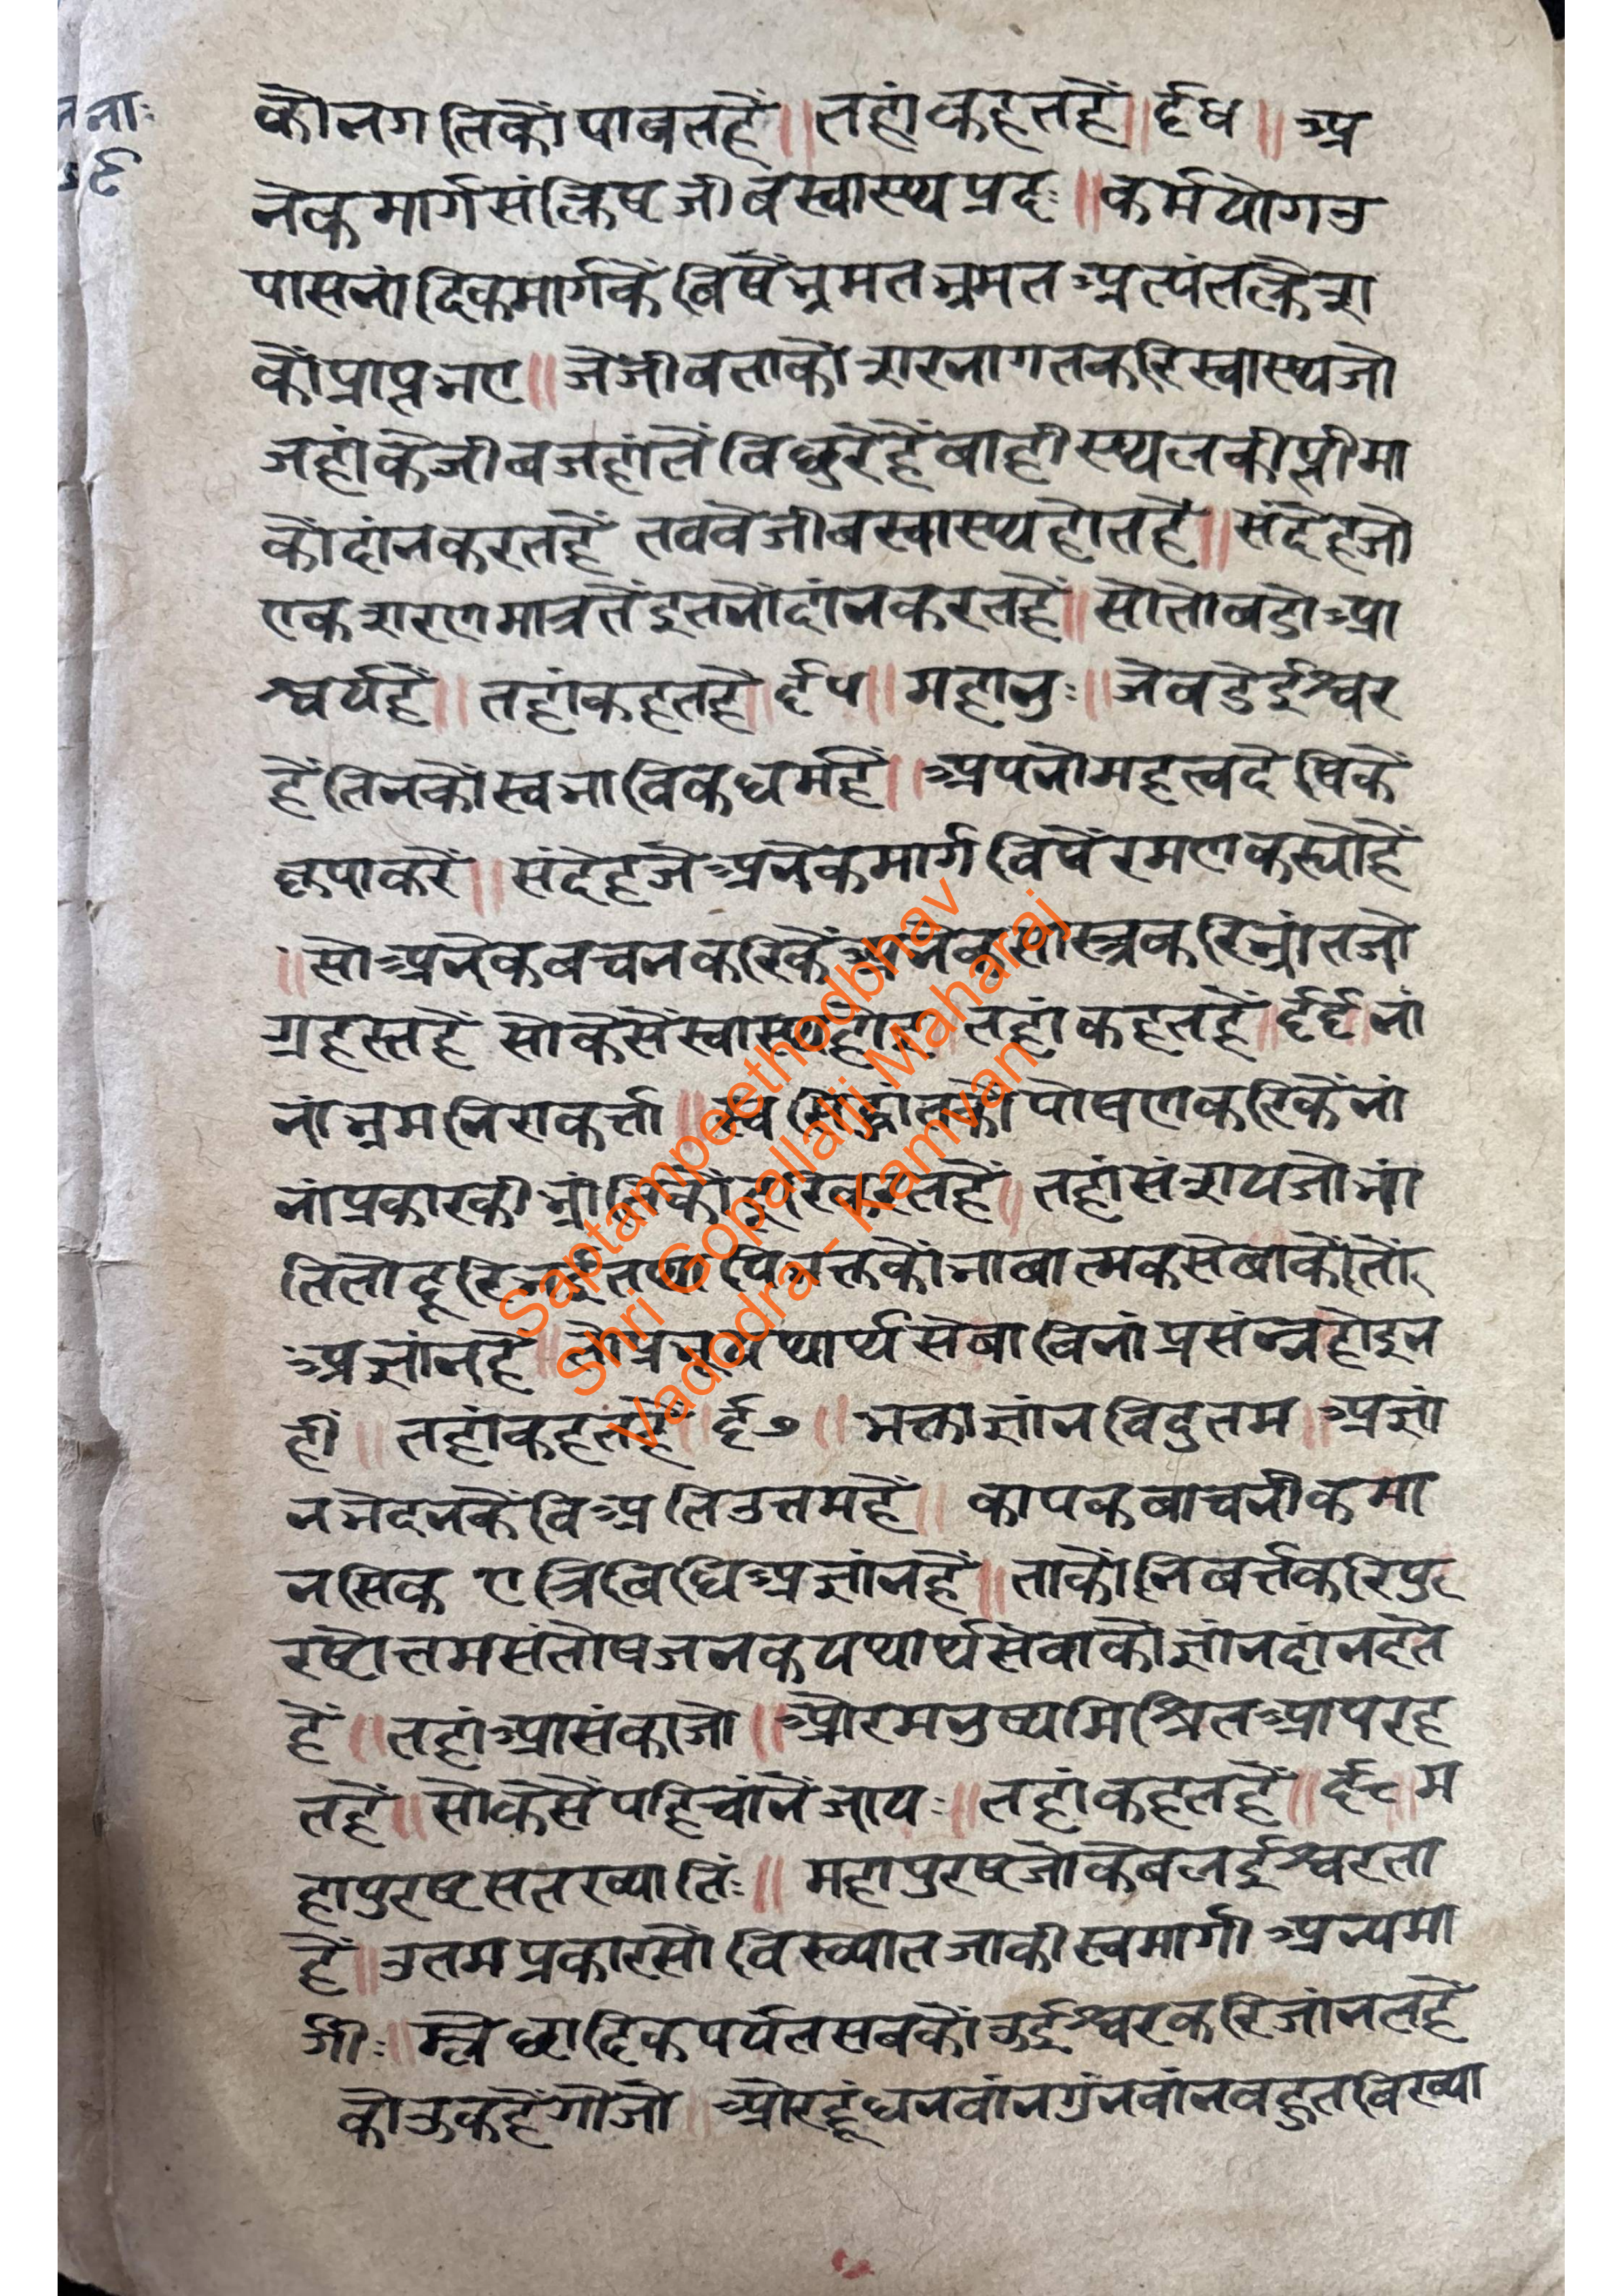 नाः
कौनगतिकौंपाबतहैं॥तहांकहतहैं॥६४॥अ
नेकमार्गसंक्लिष्टजीवस्वास्थ्यप्रदः॥कर्मयोगउ
पासनांदिकमार्गकेंविषैंभ्रमतभ्रमतअत्यंतक्लेश
कौंप्राप्तभए॥जेजीबताकोशरनागतकरिस्वास्थ्यजो
जहांकेजीबजहांतेंविछुरेहैंबाहीस्थलकीप्तीमा
कौंदांनकरतहैं तववेजीबस्वास्थ्यहोतहै॥संदेहजो
एकशरणमात्रतेंइतनोंदांनकरतहैं॥सोतोबडोआ
श्चर्यहै॥तहांकहतहैं॥६५॥महानुः॥जेबडेईश्वर
हैंतिनकौंस्वभाविकधर्महै॥अपनोमहत्वदेषिकें
कृपाकरें॥संदेहजेअनेकमार्गविषैंरमणकस्योहैं
॥सोअनेकबचनकरिकेंअनेकसास्त्रकरिभ्रांतजो
ग्रहस्तहैं सोकैसेंस्वास्थ्यहोइ॥तहांकहतहैं॥६६॥नां
नांभ्रमनिराकर्त्ता॥स्वसिद्धांतकोपोषणकरिकेंनां
नांप्रकारकीभ्रांतिकौंदूरिकरतहैं॥तहांसंशयजोभ्रां
तितोदूरिभईतथापिभक्तकौंभाबात्मकसेबाकौतौ
अज्ञांनहै॥तोप्रभूयथार्थसेबाबिनांप्रसंन्नहोइन
हीं॥तहांकहतहैं॥६७॥भक्ताज्ञांनविदुतम॥अज्ञां
नभेदनकेंविअतिउत्तमहैं॥कायकबाचनीकमा
नसिकएत्रिबिधिअज्ञांनहैं॥ताकौंनिबर्त्तकरिपुर
रषोत्तमसंतोषजनकयथार्थसेवाकौज्ञांनदांनदेत
हैं॥तहांआसंकाजो॥औरमनुष्यमिश्रितआपरह
तहैं॥सोकैसेंपहिचांनेंजायः॥तहांकहतहैं॥६८॥म
हापुरषसतख्यातिः॥महापुरषजोकेबलईश्वरता
हैं॥उतमप्रकारसोविख्यातजाकीस्वमार्गीअन्यमा
र्गीः॥म्लेछादिकपर्यंतसबकौऊईश्वरकरिजांनतहै
कोऊकहैंगोजो॥औरहूंधनवांनगुंनवांनवहुतबिख्या
Saptampeethodbhav
Shri Gopallalji Maharaj
Vadodra - Kamvan